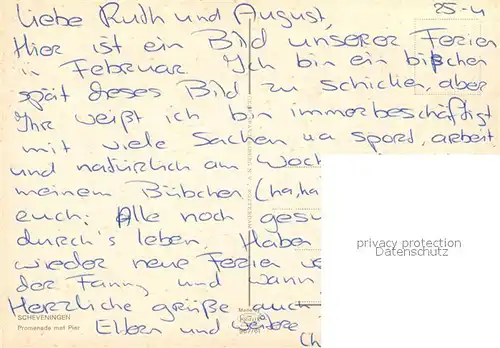 25-4
Liebe Ruth und August,
Hier ist ein Bild unserer Ferien
in Februar. Ich bin ein bißchen
spät dieses Bild zu schicken, aber
Ihr weißt ich bin immer beschäftigt
mit viele Sachen u.a. sport, arbeit
und natürlich am Woch
meinem Bübchen (ha, ha
euch: Alle noch gesu
durch's leben. Haben
wieder neue Ferien
der Fanny und wann
Herzliche grüße auch
Eltern und weitere
SCHEVENINGEN
Promenade met Pier
privacy protection
Datenschutz